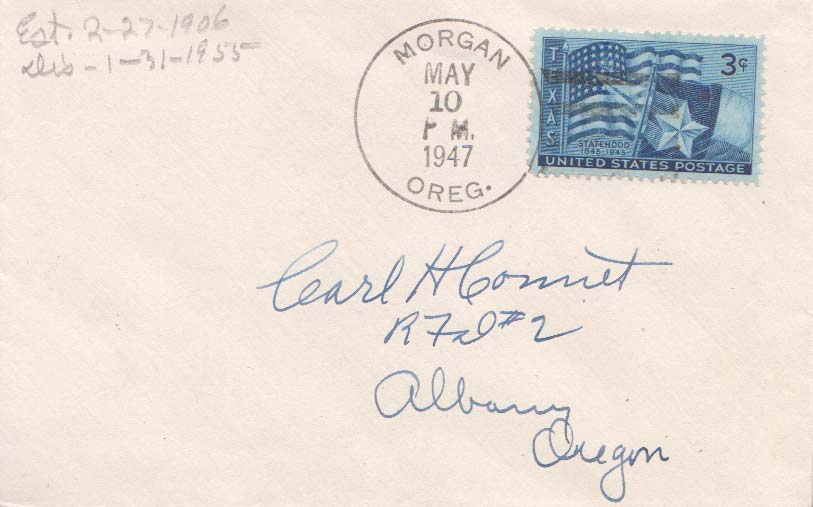 Est. 2-27-1906
Dis - 1-31-1955
MORGAN
MAY
10
P M.
1947
OREG.
TEXAS
3¢
STATEHOOD
1845-1945
UNITED STATES POSTAGE
Carl H Connet
RFD #2
Albany
Oregon